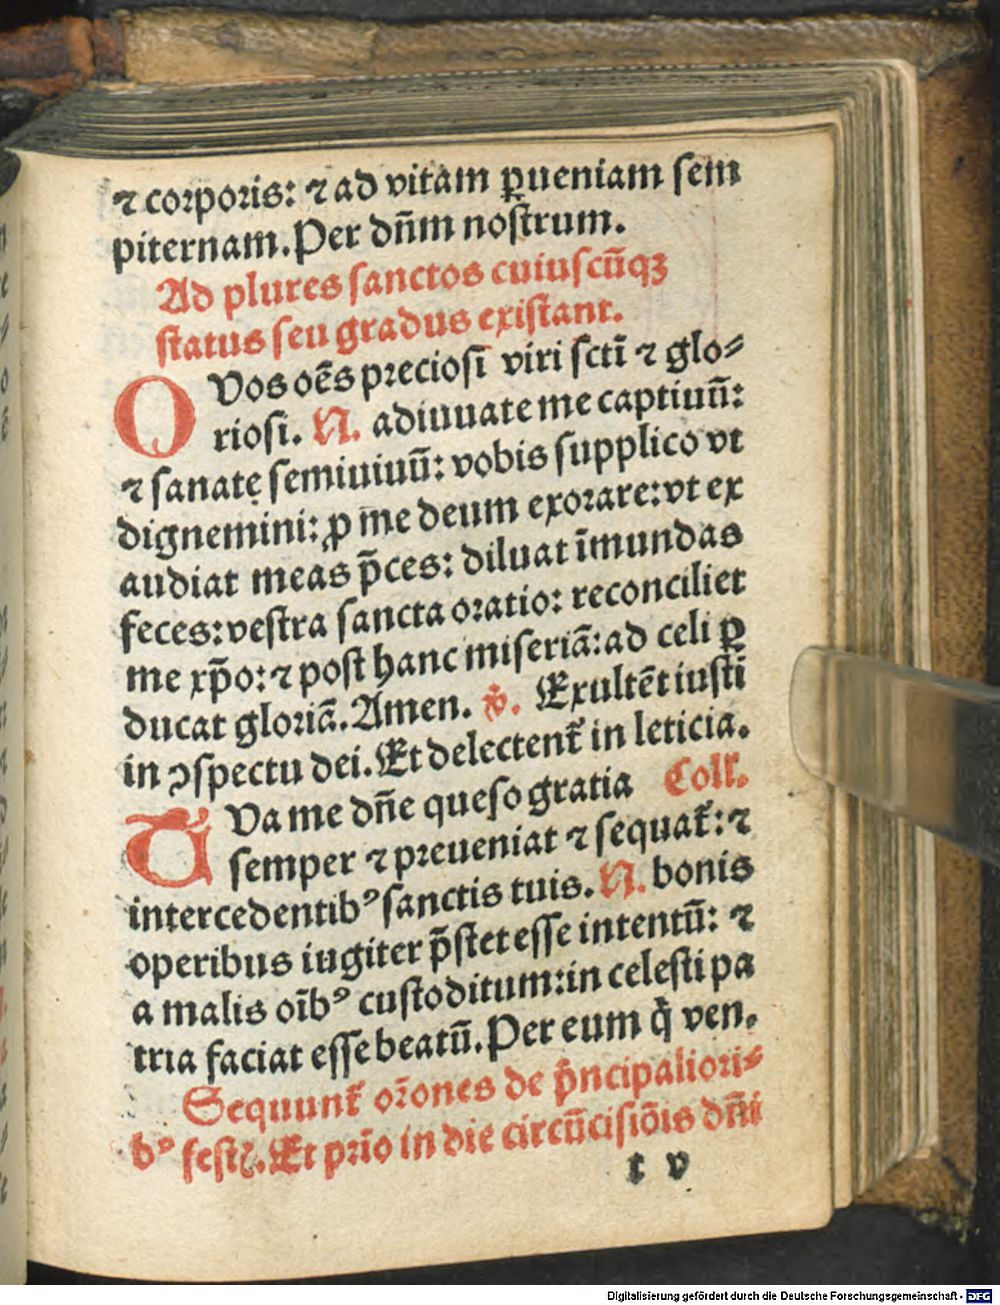 ⁊ corporis: ⁊ ad vitam ꝑueniam ſem
piternam. Per dn̄m noſtrum.
Ad plures ſanctos cuiuſcūqꝫ
ſtatus ſeu gradus exiſtant.
O Vos oēs precioſi viri ſctī ⁊ glo⸗
rioſi. N. adiuuate me captiuū:
⁊ ſanate ſemiuiuū: vobis ſupplico vt
dignemini: ꝓ me deum exorare: vt ex
audiat meas p̄ces: diluat īmundas
feces: veſtra ſancta oratio: reconciliet
me xp̄o: ⁊ poſt hanc miſeriā: ad celi ꝑ
ducat gloriā. Amen. ℣. Exultēt iuſti
in ↄſpectu dei. Et delectent᷑ in leticia.
T Va me dn̄e queſo gratia Coll'.
ſemper ⁊ preueniat ⁊ ſequat᷑: ⁊
intercedentibꝰ ſanctis tuis. N. bonis
operibus iugiter p̄ſtet eſſe intentū: ⁊
a malis oībꝰ cuſtoditum: in celeſti pa
tria faciat eſſe beatū. Per eum q̇ ven.
Sequunt᷑ or̄ones de p̓ncipaliori⸗
bꝰ feſtꝭ. Et prīo in die circūciſiōis dn̄i
t v
Digitalisierung gefördert durch die Deutsche Forschungsgemeinschaft - DFG